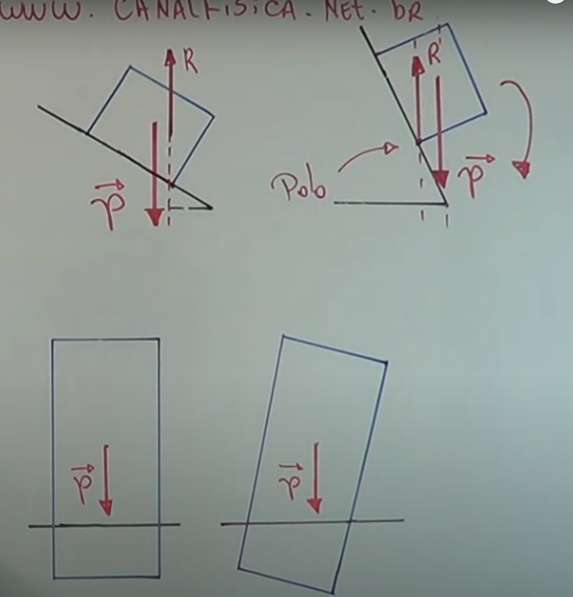 WWW. CANALFISICA. NET. bR
R
R
P
Polo
P
P
P